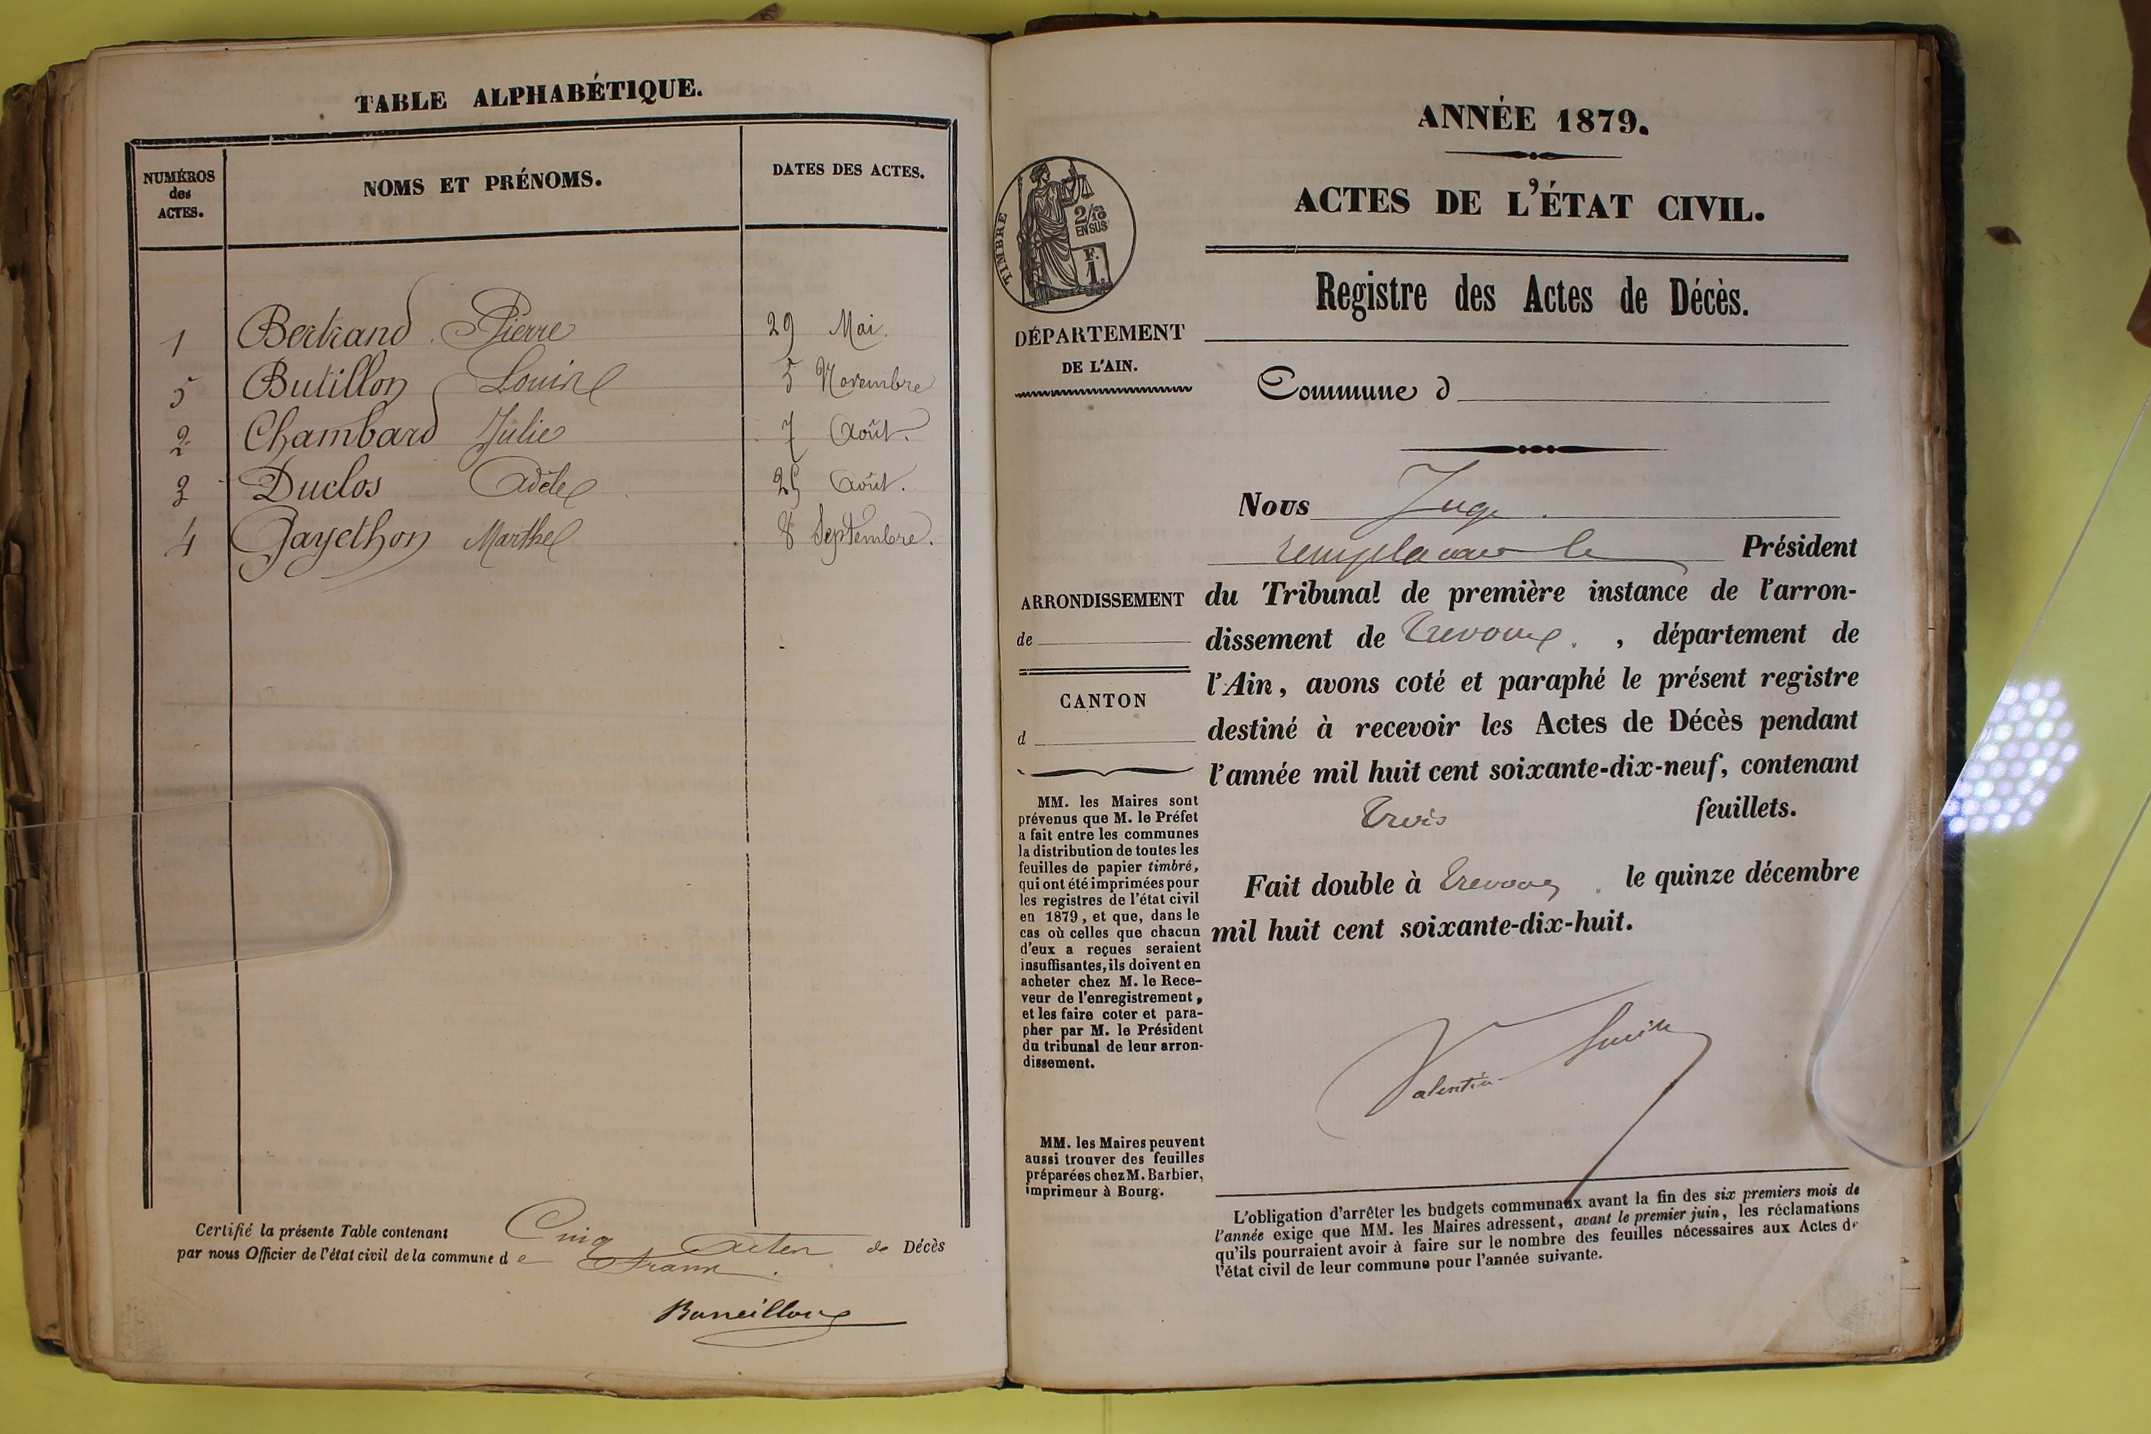 TABLE ALPHABÉTIQUE.
NUMÉROS des ACTES.
NOMS ET PRÉNOMS.
DATES DES ACTES.
1 Bertrand Pierre 29 Mai.
5 Butillon Louise 5 Novembre
2 Chambard Julie 7 Août.
3 Duclos Adèle 25 Août.
4 Gayethon Marthe 8 Septembre.
Certifié la présente Table contenant Cinq Actes de Décès
par nous Officier de l'état civil de la commune de
ANNÉE 1879.
ACTES DE L'ÉTAT CIVIL.
TIMBRE
2/10
EN SUS
F.
1.
DÉPARTEMENT
DE L'AIN.
ARRONDISSEMENT
de
CANTON
d
MM. les Maires sont
prévenus que M. le Préfet
a fait entre les communes
la distribution de toutes les
feuilles de papier timbré,
qui ont été imprimées pour
les registres de l'état civil
en 1879, et que, dans le
cas où celles que chacun
d'eux a reçues seraient
insuffisantes, ils doivent en
acheter chez M. le Rece-
veur de l'enregistrement,
et les faire coter et para-
pher par M. le Président
du tribunal de leur arron-
dissement.
MM. les Maires peuvent
aussi trouver des feuilles
préparées chez M. Barbier,
imprimeur à Bourg.
Registre des Actes de Décès.
Commune d
Nous Juge
remplaçant le Président
du Tribunal de première instance de l'arron-
dissement de Trevoux. , département de
l'Ain, avons coté et paraphé le présent registre
destiné à recevoir les Actes de Décès pendant
l'année mil huit cent soixante-dix-neuf, contenant
Trois feuillets.
Fait double à Trevoux. le quinze décembre
mil huit cent soixante-dix-huit.
Valentin
L'obligation d'arrêter les budgets communaux avant la fin des six premiers mois de
l'année exige que MM. les Maires adressent, avant le premier juin, les réclamations
qu'ils pourraient avoir à faire sur le nombre des feuilles nécessaires aux Actes de
l'état civil de leur commune pour l'année suivante.